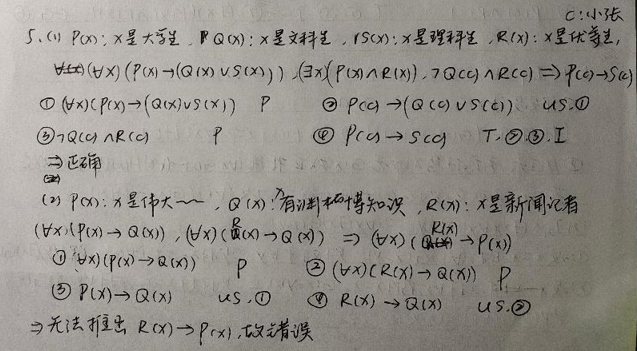 C:小张
5.(1) P(x): x是大学生, Q(x): x是文科生, S(x): x是理科生, R(x): x是优等生,
(∀x)(P(x)→(Q(x)∨S(x))), (∃x)(P(x)∧R(x)), ¬Q(c)∧R(c) ⇒ P(c)→S(c)
① (∀x)(P(x)→(Q(x)∨S(x)) P ② P(c)→(Q(c)∨S(c)) US.①
③ ¬Q(c)∧R(c) P ④ P(c)→S(c) T.②.③.I
⇒正确
(2) P(x): x是伟大~~, Q(x): x有渊博知识, R(x): x是新闻记者
(∀x)(P(x)→Q(x)), (∀x)(R(x)→Q(x)) ⇒ (∀x)(R(x)→P(x))
① ∀x)(P(x)→Q(x)) P ② (∀x)(R(x)→Q(x)) P
③ P(x)→Q(x) US.① ④ R(x)→Q(x) US.②
⇒无法推出 R(x)→P(x),故错误